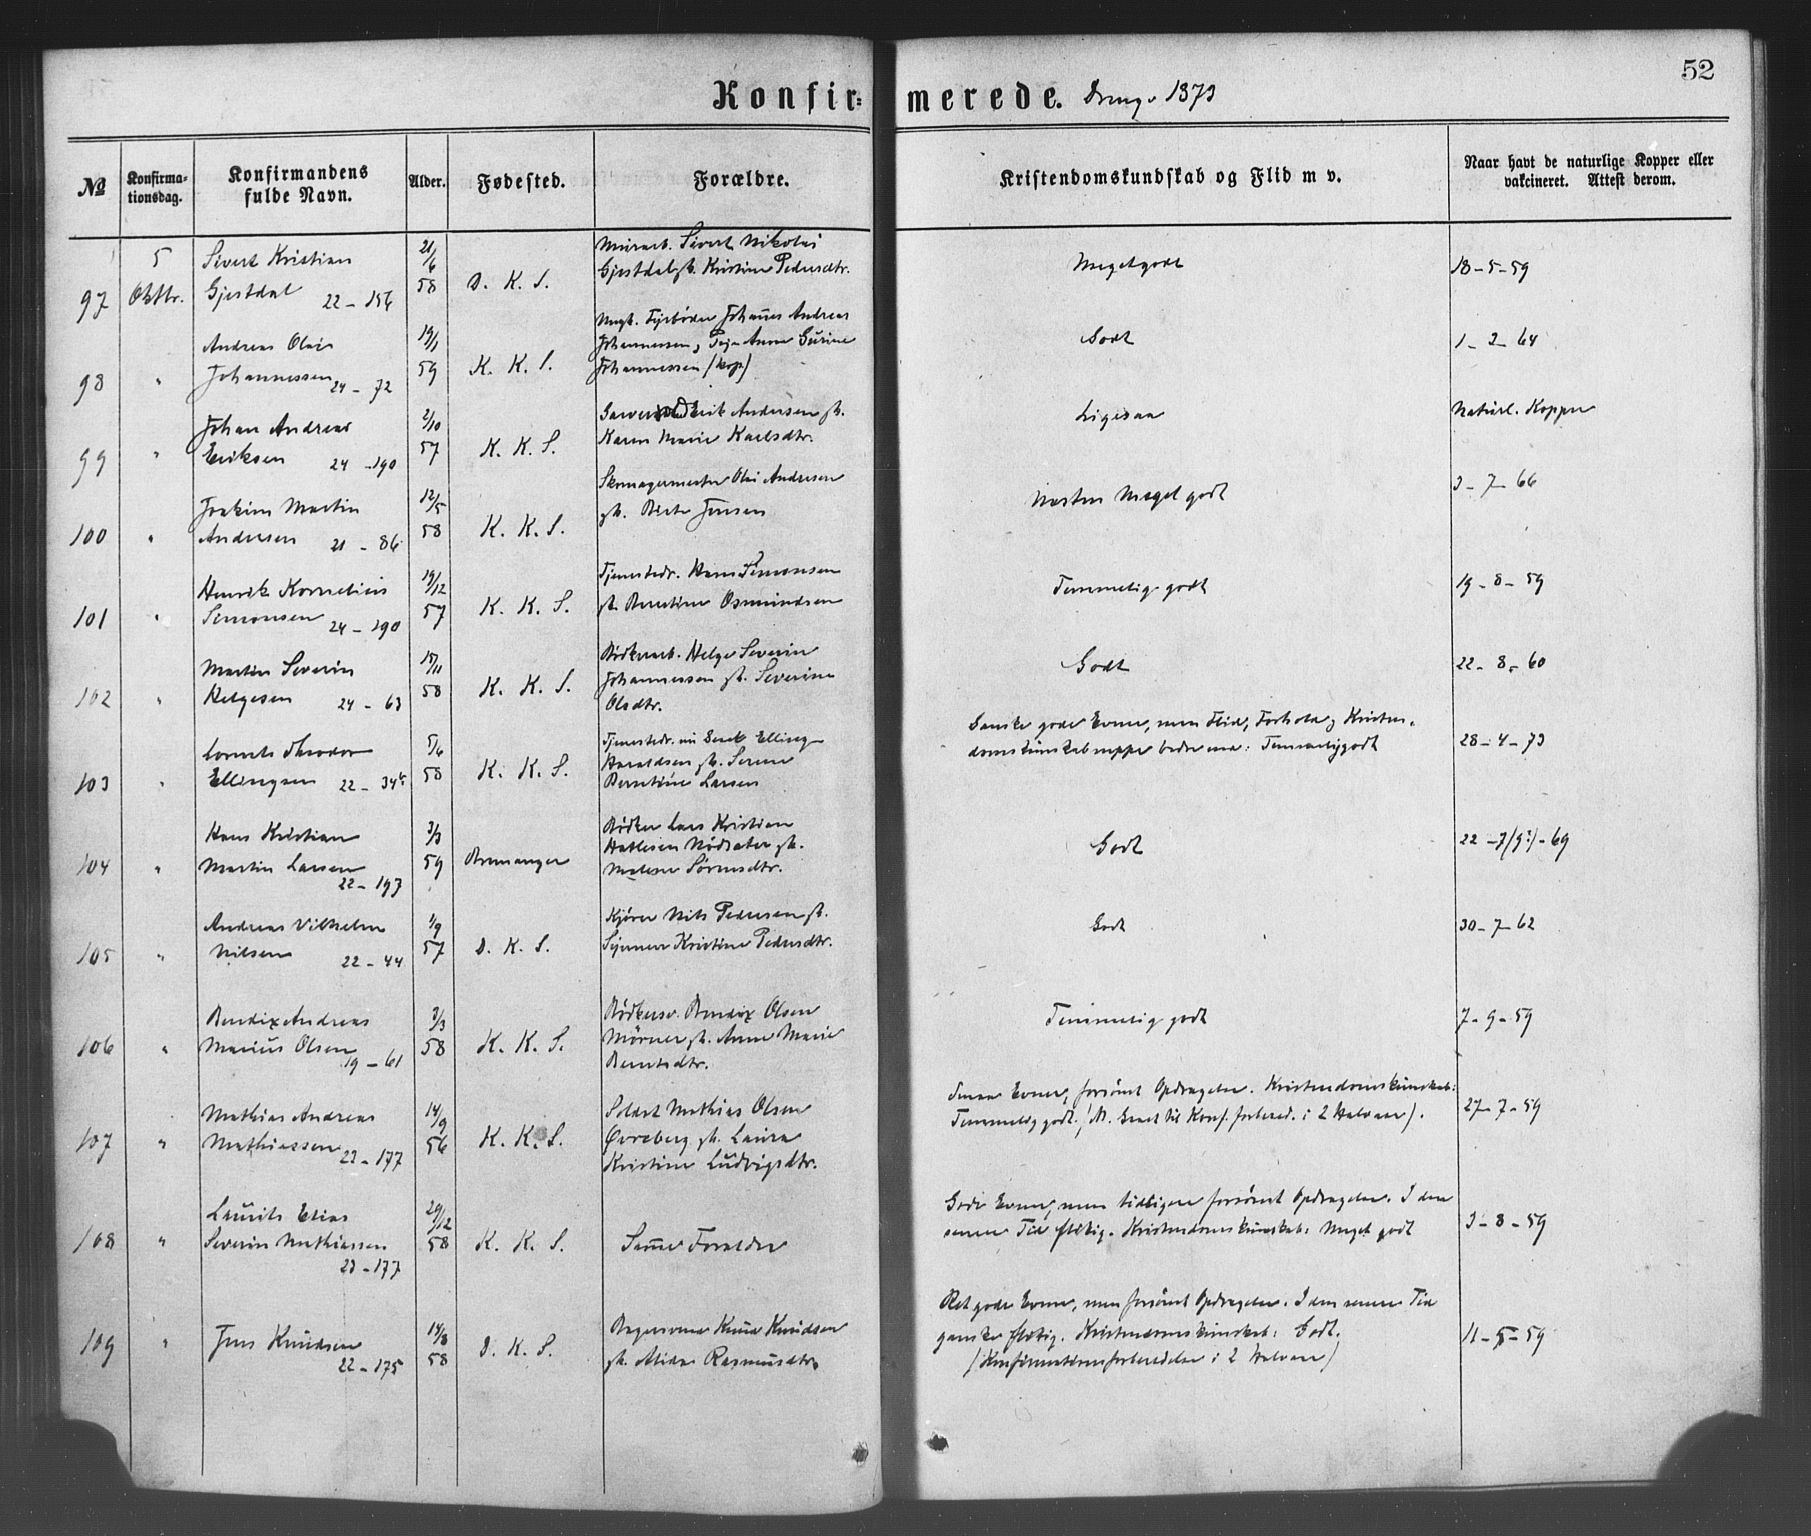 52
Konfir- merede. Drenge 1873
No
Konfirma-
tionsdag.
Konfirmandens
fulde Navn.
Alder.
Fødested.
Forældre.
Kristendomskundskab og Flid m v.
Naar havt de naturlige Kopper eller
vakcineret. Attest derom.
97 5 Oktbr.
Sivert Kristian
Gjestdal 22-156
21/6 58
D. K. S.
Murarb. Sivert Nikolai
Gjestdal og h. Kristine Pedersdtr.
Meget godt
18-5-59
98 "
Andreas Olai
Johannessen 24-72
19/1 59
K. K. S.
Johannes Andreas
Johannessen, Anne Gurine
Johannessen (kop)
Godt
1-2-64
99 "
Johan Andreas
Eriksen 24-190
2/10 57
K. K. S.
Erik Andersen h.
Karen Marie Karlsdtr.
Ligesaa
Naturl. Kopper
100 "
Joakim Martin
Andresen 21-86
12/5 58
K. K. S.
Skomagermester Olai Andresen
h. Berte Jensen
Næsten Meget godt
3-7-66
101 "
Henrik Kornelius
Simonsen 24-190
19/12 57
K. K. S.
Tjenestedr. Hans Simonsen
h. Berntine Osmundsen
Temmelig godt
19-8-59
102 "
Martin Severin
Helgesen 24-63
15/11 58
K. K. S.
Bødkerarb. Helge Severin
Johannessen h. Severine
Olsdtr.
Godt
22-8-60
103 "
Lornts Theodor
Ellingsen 22-34b
5/6 58
K. K. S.
Tjenestedr. Ellling
Haraldsen h. Serine
Berntine Larsen
Ganske gode Evner, men Flid, Forhold og Kristen-
domskundskab neppe bedre end: Temmelig godt
28-4-73
104 "
Hans Kristian
Martin Larsen
22-197
3/3 59
Bremanger
Bødker Lars Kristian
Hatlesen Nødseter h.
Malene Sørensdtr.
Godt
22-7(9?)-69
105 "
Andreas Vilhelm
Nilsen 22-44
1/9 57
D. K. S.
Kjører Nils Pedersen h.
Kristine Pedersdtr.
Godt
30-7-62
106 "
Bendix Andreas
Marius Olsen
19-61
3/3 58
K. K. S.
Bødkersv. Bendix Olsen
Mörner h. Anne Marie
Berntsdtr.
Temmelig godt
7-9-59
107 "
Mathias Andreas
Mathiassen 23-177
14/9 56
K. K. S.
Soldat Mathias Olsen
Øvreberg h. Laura
Kristine Ludvigsdtr.
Smaa Evner, forsømt Opdragelse. Kristendomskundskab:
Temmelig godt. (N. Gaaet til Konf. forbered. i 2 Halvaar).
27-7-59
108 "
Laurits Elias
Severin Mathiassen
23-177
29/12 58
K. K. S.
Samme Forældre
Gode Evner, men tidligere forsømt Opdragelse. I den
senere Tid flittig. Kristendomskundskab: Meget godt
3-8-59
109 "
Jens Knudsen
22-175
14/8 58
D. K. S.
Knud Knudsen
h. Alida Rasmusdtr.
Ret gode Evner, men forsømt Opdragelse. I den senere Tid
ganske flittig. Kristendomskundskab: Godt.
(Konfirmationsforberedelse i 2 Halvaar)
11-5-59